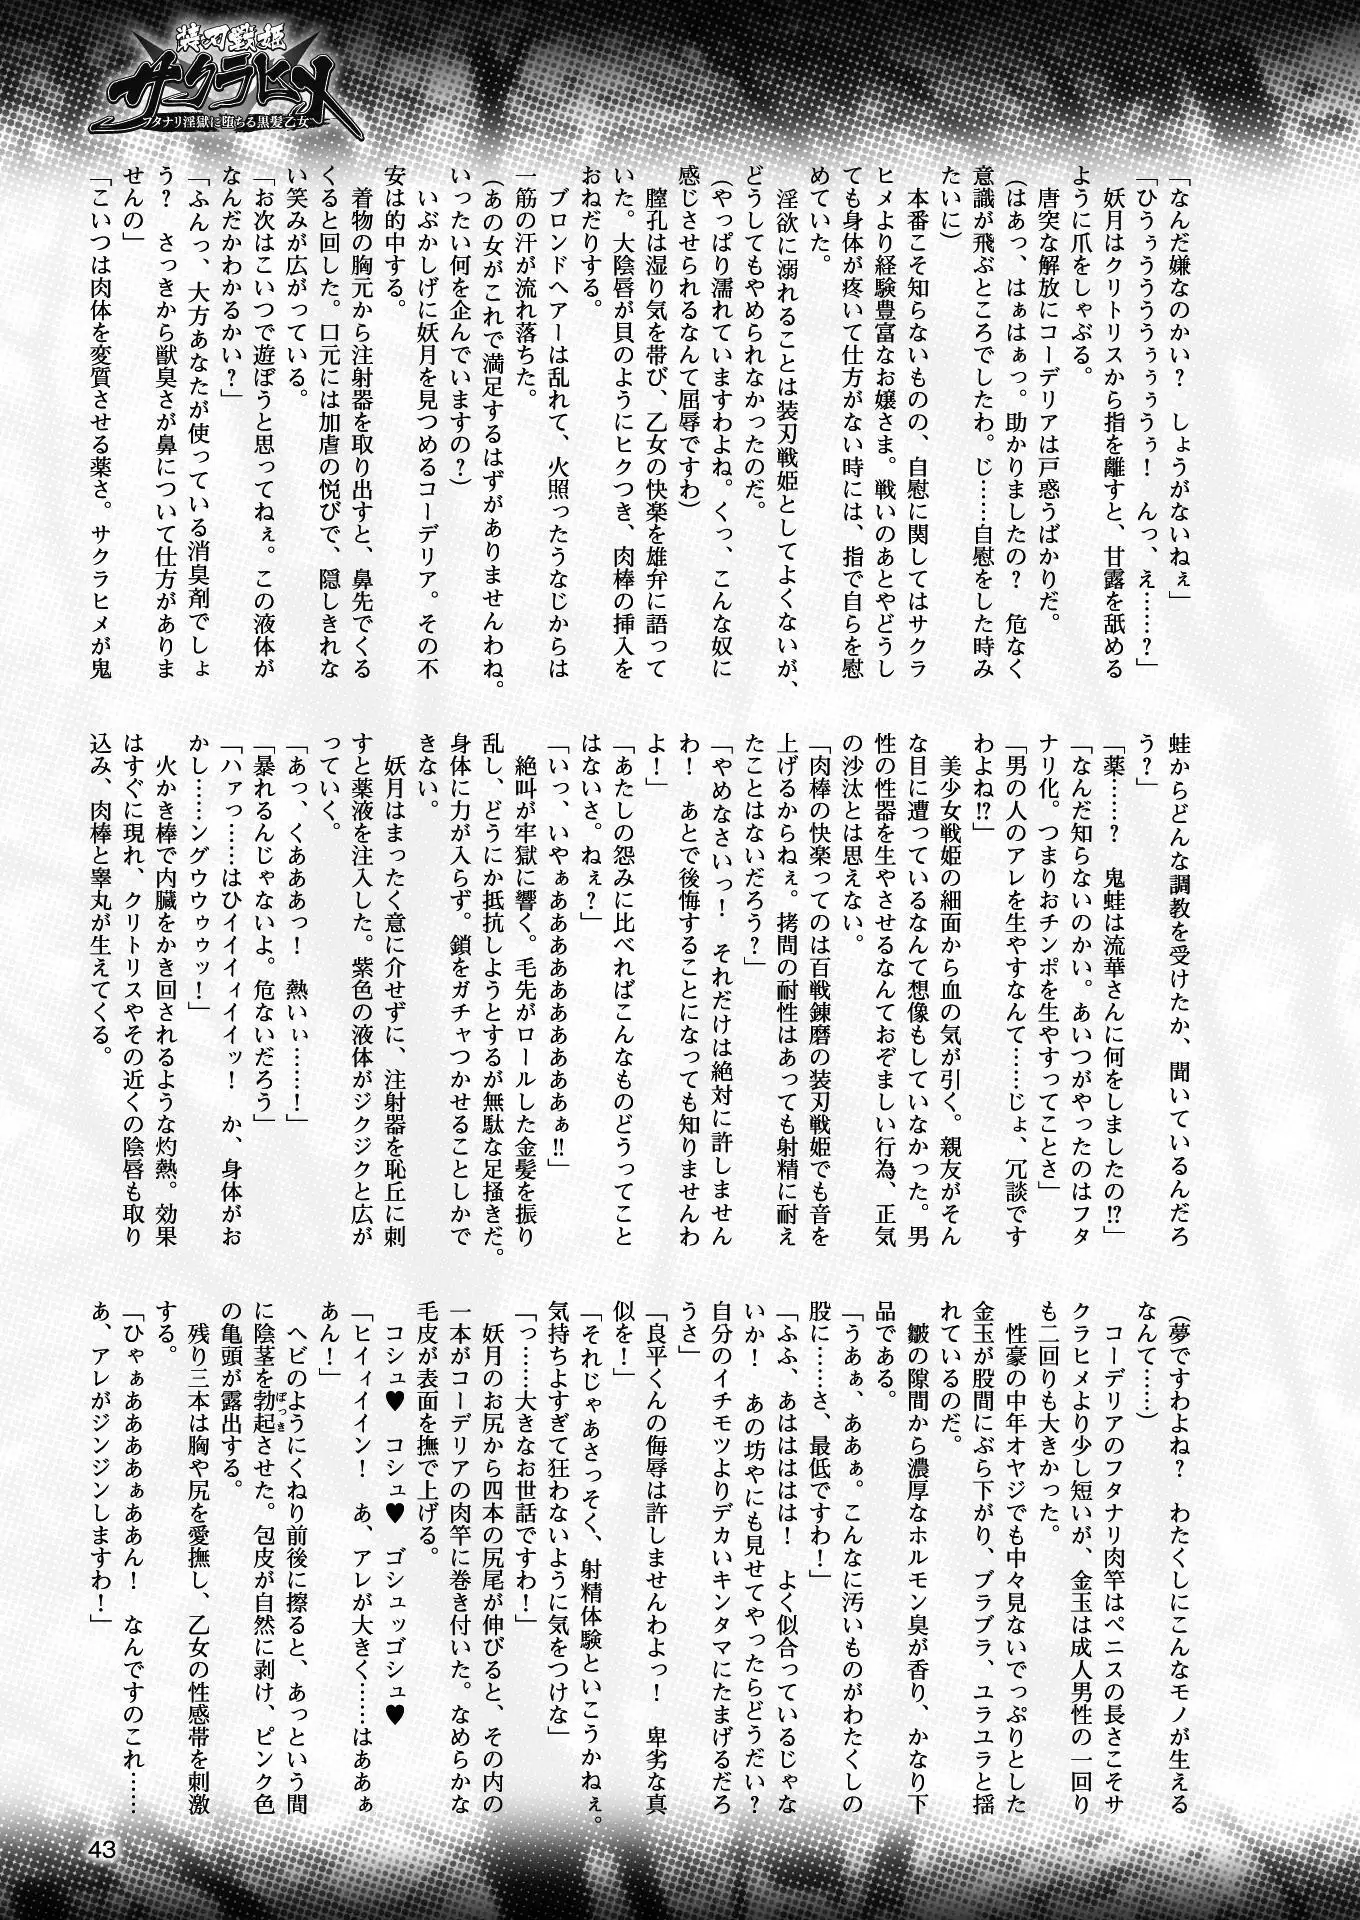 装刃戦姫
サクラヒメ
フタナリ淫獄に堕ちる黒髪乙女
「なんだ嫌なのかい？　しょうがないねぇ」
「ひうぅぅうううぅぅぅうぅ！　んっ、え……？」
妖月はクリトリスから指を離すと、甘露を舐める
ように爪をしゃぶる。
唐突な解放にコーデリアは戸惑うばかりだ。
（はあっ、はぁはぁっ。助かりましたの？　危なく
意識が飛ぶところでしたわ。じ……自慰をした時み
たいに）
本番こそ知らないものの、自慰に関してはサクラ
ヒメより経験豊富なお嬢さま。戦いのあとやどうし
ても身体が疼いて仕方がない時には、指で自らを慰
めていた。
淫欲に溺れることは装刃戦姫としてよくないが、
どうしてもやめられなかったのだ。
（やっぱり濡れていますわよね。くっ、こんな奴に
感じさせられるなんて屈辱ですわ）
膣孔は湿り気を帯び、乙女の快楽を雄弁に語って
いた。大陰唇が貝のようにヒクつき、肉棒の挿入を
おねだりする。
ブロンドヘアーは乱れて、火照ったうなじからは
一筋の汗が流れ落ちた。
（あの女がこれで満足するはずがありませんわね。
いったい何を企んでいますの？）
いぶかしげに妖月を見つめるコーデリア。その不
安は的中する。
着物の胸元から注射器を取り出すと、鼻先でくる
くると回した。口元には加虐の悦びで、隠しきれな
い笑みが広がっている。
「お次はこいつで遊ぼうと思ってねぇ。この液体が
なんだかわかるかい？」
「ふんっ、大方あなたが使っている消臭剤でしょ
う？　さっきから獣臭さが鼻について仕方がありま
せんの」
「こいつは肉体を変質させる薬さ。サクラヒメが鬼
蛙からどんな調教を受けたか、聞いているんだろ
う？」
「薬……？　鬼蛙は流華さんに何をしましたの!?」
「なんだ知らないのかい。あいつがやったのはフタ
ナリ化。つまりおチンポを生やすってことさ」
「男の人のアレを生やすなんて……じょ、冗談です
わよね!?」
美少女戦姫の細面から血の気が引く。親友がそん
な目に遭っているなんて想像もしていなかった。男
性の性器を生やさせるなんておぞましい行為、正気
の沙汰とは思えない。
「肉棒の快楽ってのは百戦錬磨の装刃戦姫でも音を
上げるからねぇ。拷問の耐性はあっても射精に耐え
たことはないだろう？」
「やめなさいっ！　それだけは絶対に許しません
わ！　あとで後悔することになっても知りませんわ
よ！」
「あたしの怨みに比べればこんなものどうってこと
はないさ。ねぇ？」
「いっ、いやぁああああああああああぁ!!」
絶叫が牢獄に響く。毛先がロールした金髪を振り
乱し、どうにか抵抗しようとするが無駄な足掻きだ。
身体に力が入らず。鎖をガチャつかせることしかで
きない。
妖月はまったく意に介せずに、注射器を恥丘に刺
すと薬液を注入した。紫色の液体がジクジクと広が
っていく。
「あっ、くあああっ！　熱いぃ……！」
「暴れるんじゃないよ。危ないだろう」
「ハァっ……はひイイイィイイッ！　か、身体がお
かし……ングウウゥゥッ！」
火かき棒で内臓をかき回されるような灼熱。効果
はすぐに現れ、クリトリスやその近くの陰唇も取り
込み、肉棒と睾丸が生えてくる。
（夢ですわよね？　わたくしにこんなモノが生える
なんて……）
コーデリアのフタナリ肉竿はペニスの長さこそサ
クラヒメより少し短いが、金玉は成人男性の一回り
も二回りも大きかった。
性豪の中年オヤジでも中々見ないでっぷりとした
金玉が股間にぶら下がり、ブラブラ、ユラユラと揺
れているのだ。
皺の隙間から濃厚なホルモン臭が香り、かなり下
品である。
「うあぁ、ああぁ。こんなに汚いものがわたくしの
股に……さ、最低ですわ！」
「ふふ、あはははは！　よく似合っているじゃな
いか！　あの坊やにも見せてやったらどうだい？
自分のイチモツよりデカいキンタマにたまげるだろ
うさ」
「良平くんの侮辱は許しませんわよっ！　卑劣な真
似を！」
「それじゃあさっそく、射精体験といこうかねぇ。
気持ちよすぎて狂わないように気をつけな」
「っ……大きなお世話ですわ！」
妖月のお尻から四本の尻尾が伸びると、その内の
一本がコーデリアの肉竿に巻き付いた。なめらかな
毛皮が表面を撫で上げる。
コシュ♥　コシュ♥　ゴシュッゴシュ♥
「ヒイィイイン！　あ、アレが大きく……はああぁ
あん！」
ヘビのようにくねり前後に擦ると、あっという間
に陰茎を勃起（ぼっき）させた。包皮が自然に剥け、ピンク色
の亀頭が露出する。
残り三本は胸や尻を愛撫し、乙女の性感帯を刺激
する。
「ひゃぁああああぁああん！　なんですのこれ……
あ、アレがジンジンしますわ！」
43